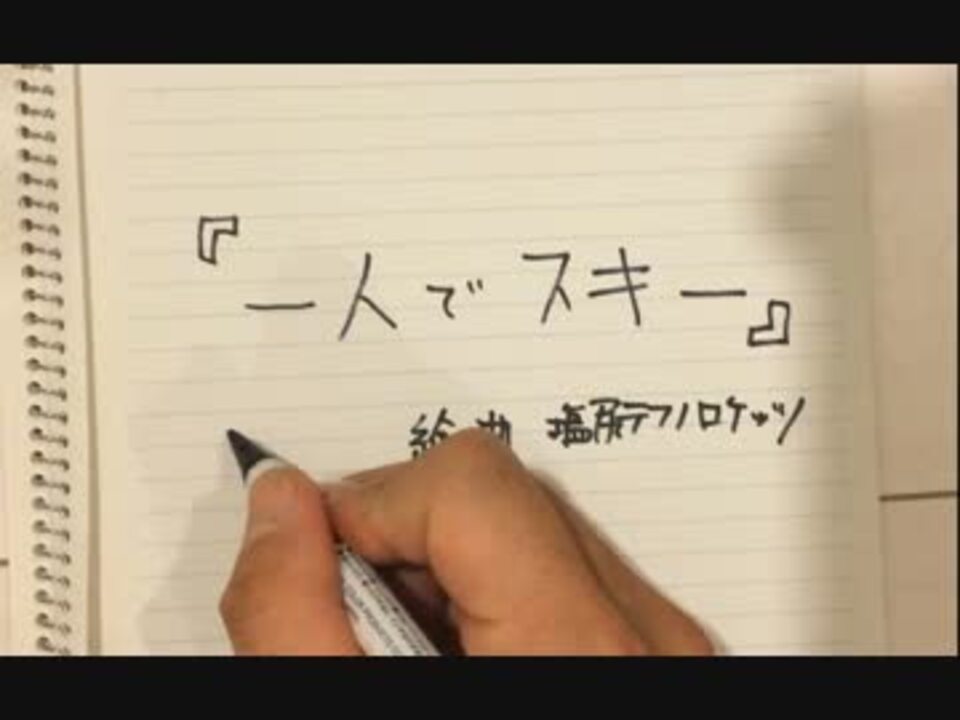 『一人でスキー』
絵 曲 塩豚テフノロケッツ